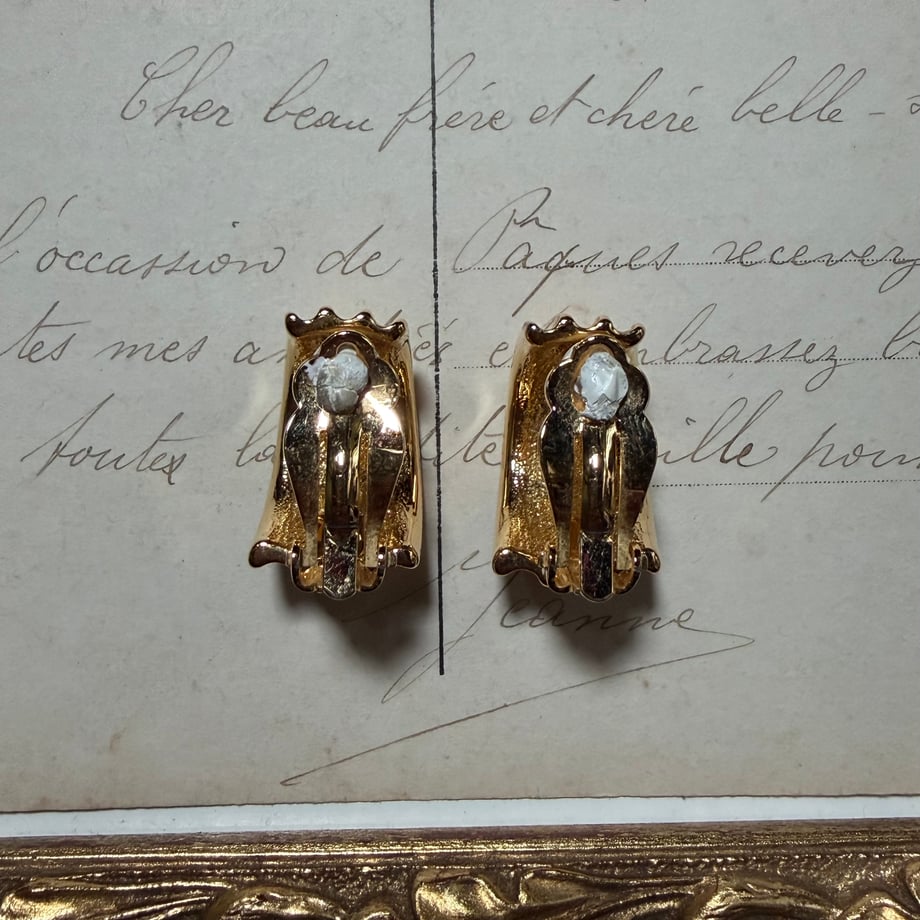 Cher beau frère et chère belle -
l'occassion de Pâques recevez
tes mes a embrassez
toutes la ille pour
Jeanne